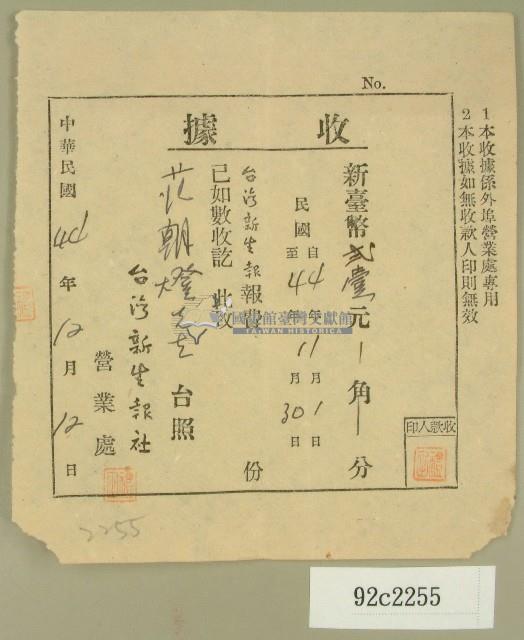 No.
1 本收據係外埠營業處專用
2 本收據如無收款人印則無效
收據
新臺幣 元 角 分
民國自44年11月1日
至44年 月30日
台湾新生報報費 份
已如數收訖 此致
朝燈 台照
台湾新生報社
營業處
中華民國44年12月12日
收款人印
國史館臺灣文獻館
TAIWAN HISTORICA
2255
92c2255